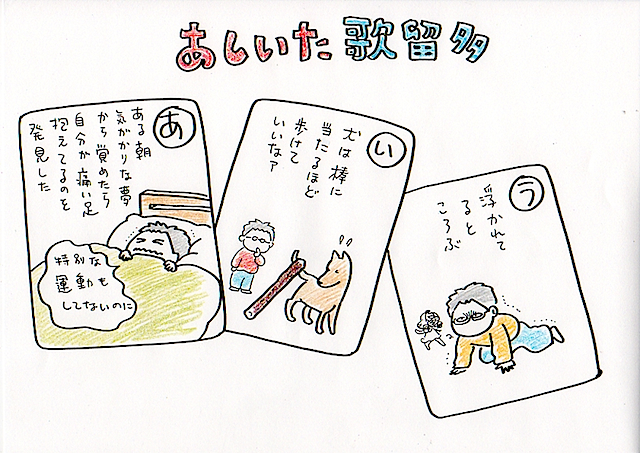 あしいた歌留多
あ
ある朝
気がかりな夢
から覚めたら
自分が痛い足
抱えてるのを
発見した
特別な
運動も
してないのに
い
犬は棒に
当たるほど
歩けて
いいなァ
う
浮かれて
ると
ころぶ